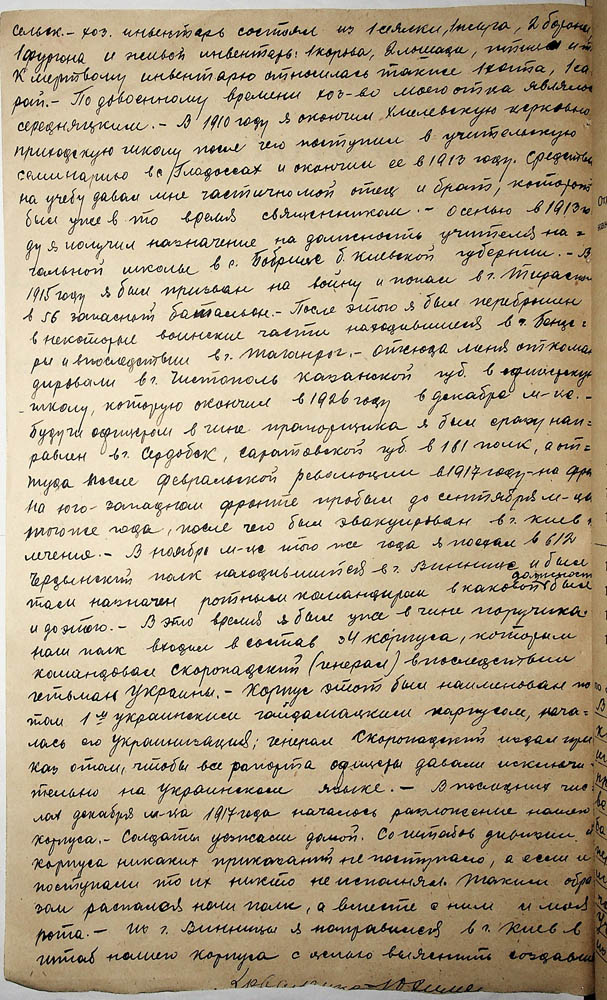 сельск.- хоз. инвентарь состоял из 1 сеялки, 1 плуга, 2 борони,
1 фургона и живой инвентарь: 1 корова, 2 лошади, птица и т.
К мертвому инвентарю относилась также 1 хата, 1 са=
рай.- По довоенному времени хоз-во моего отца являлось
середняцким.- В 1910 году я окончил Хмелевскую церковно
приходскую школу после чего поступил в учительскую
семинарию в с. Гладоссах и окончил ее в 1913 году. Средства
на учебу давал мне частично мой отец и брат, который
был уже в то время священником.- Осенью в 1913 го
ду я получил назначение на должность учителя на=
чальной школы в с. Бобринце б. Киевской губернии.- В
1915 году я был призван на войну и попал в г. Тирасполь
в 56 запасной батальон.- После этого я был переброшен
в некоторые воинские части находившиеся в г. Бенде=
ры и впоследствии в г. Таганрог.- Отсюда меня откоман
дировали в г. Чистополь Казанской губ. в офицерскую
школу, которую окончил в 1926 году в декабре м-це.-
Будучи офицером в чине прапорщика я был сразу нап=
равлен в г. Сердобск, Саратовской губ. в 181 полк, а от=
туда после февральской революции в 1917 году - на фро
На юго-западном фронте пробыл до сентября м-ца
того же года, после чего был эвакуирован в г. Киев н
лечение.- В ноябре м-це того же года я поехал в 612
Чердынский полк находившийся в г. Виннице и был
там назначен ротным командиром в каковой должности был
и до этого.- В это время я был уже в чине поручика.
Наш полк входил в состав 34 корпуса, которым
командовал Скоропадский (генерал) впоследствии
гетьман Украины.- Корпус этот был наименован по
том 1-ым украинским гайдамацким корпусом, нача=
лась его украинизация; генерал Скоропадский издал при
каз о том, чтобы все рапорта офицеры давали исключи
тельно на украинском языке.- В последних чис
лах декабря м-ца 1917 года началось разложение нашего
корпуса.- Солдаты уезжали домой. Со штабов дивизии и
корпуса никаких приказаний не поступало, а если и
поступали то их никто не исполнял. Таким обра
зом распался наш полк, а вместе с ним и моя
рота.- Из г. Винницы я направился в г. Киев в
штаб нашего корпуса с целью выяснить создавш